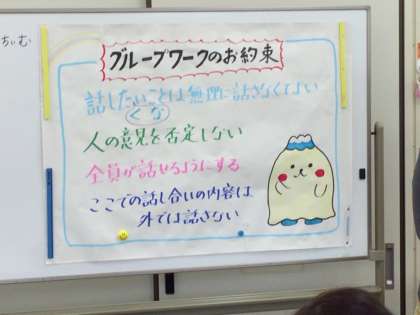 ちぃむ
グループワークのお約束
話したいことは無理に話さなくてよい
くな
人の意見を否定しない
全員が話せるようにする
ここでの話し合いの内容は
外では話さない